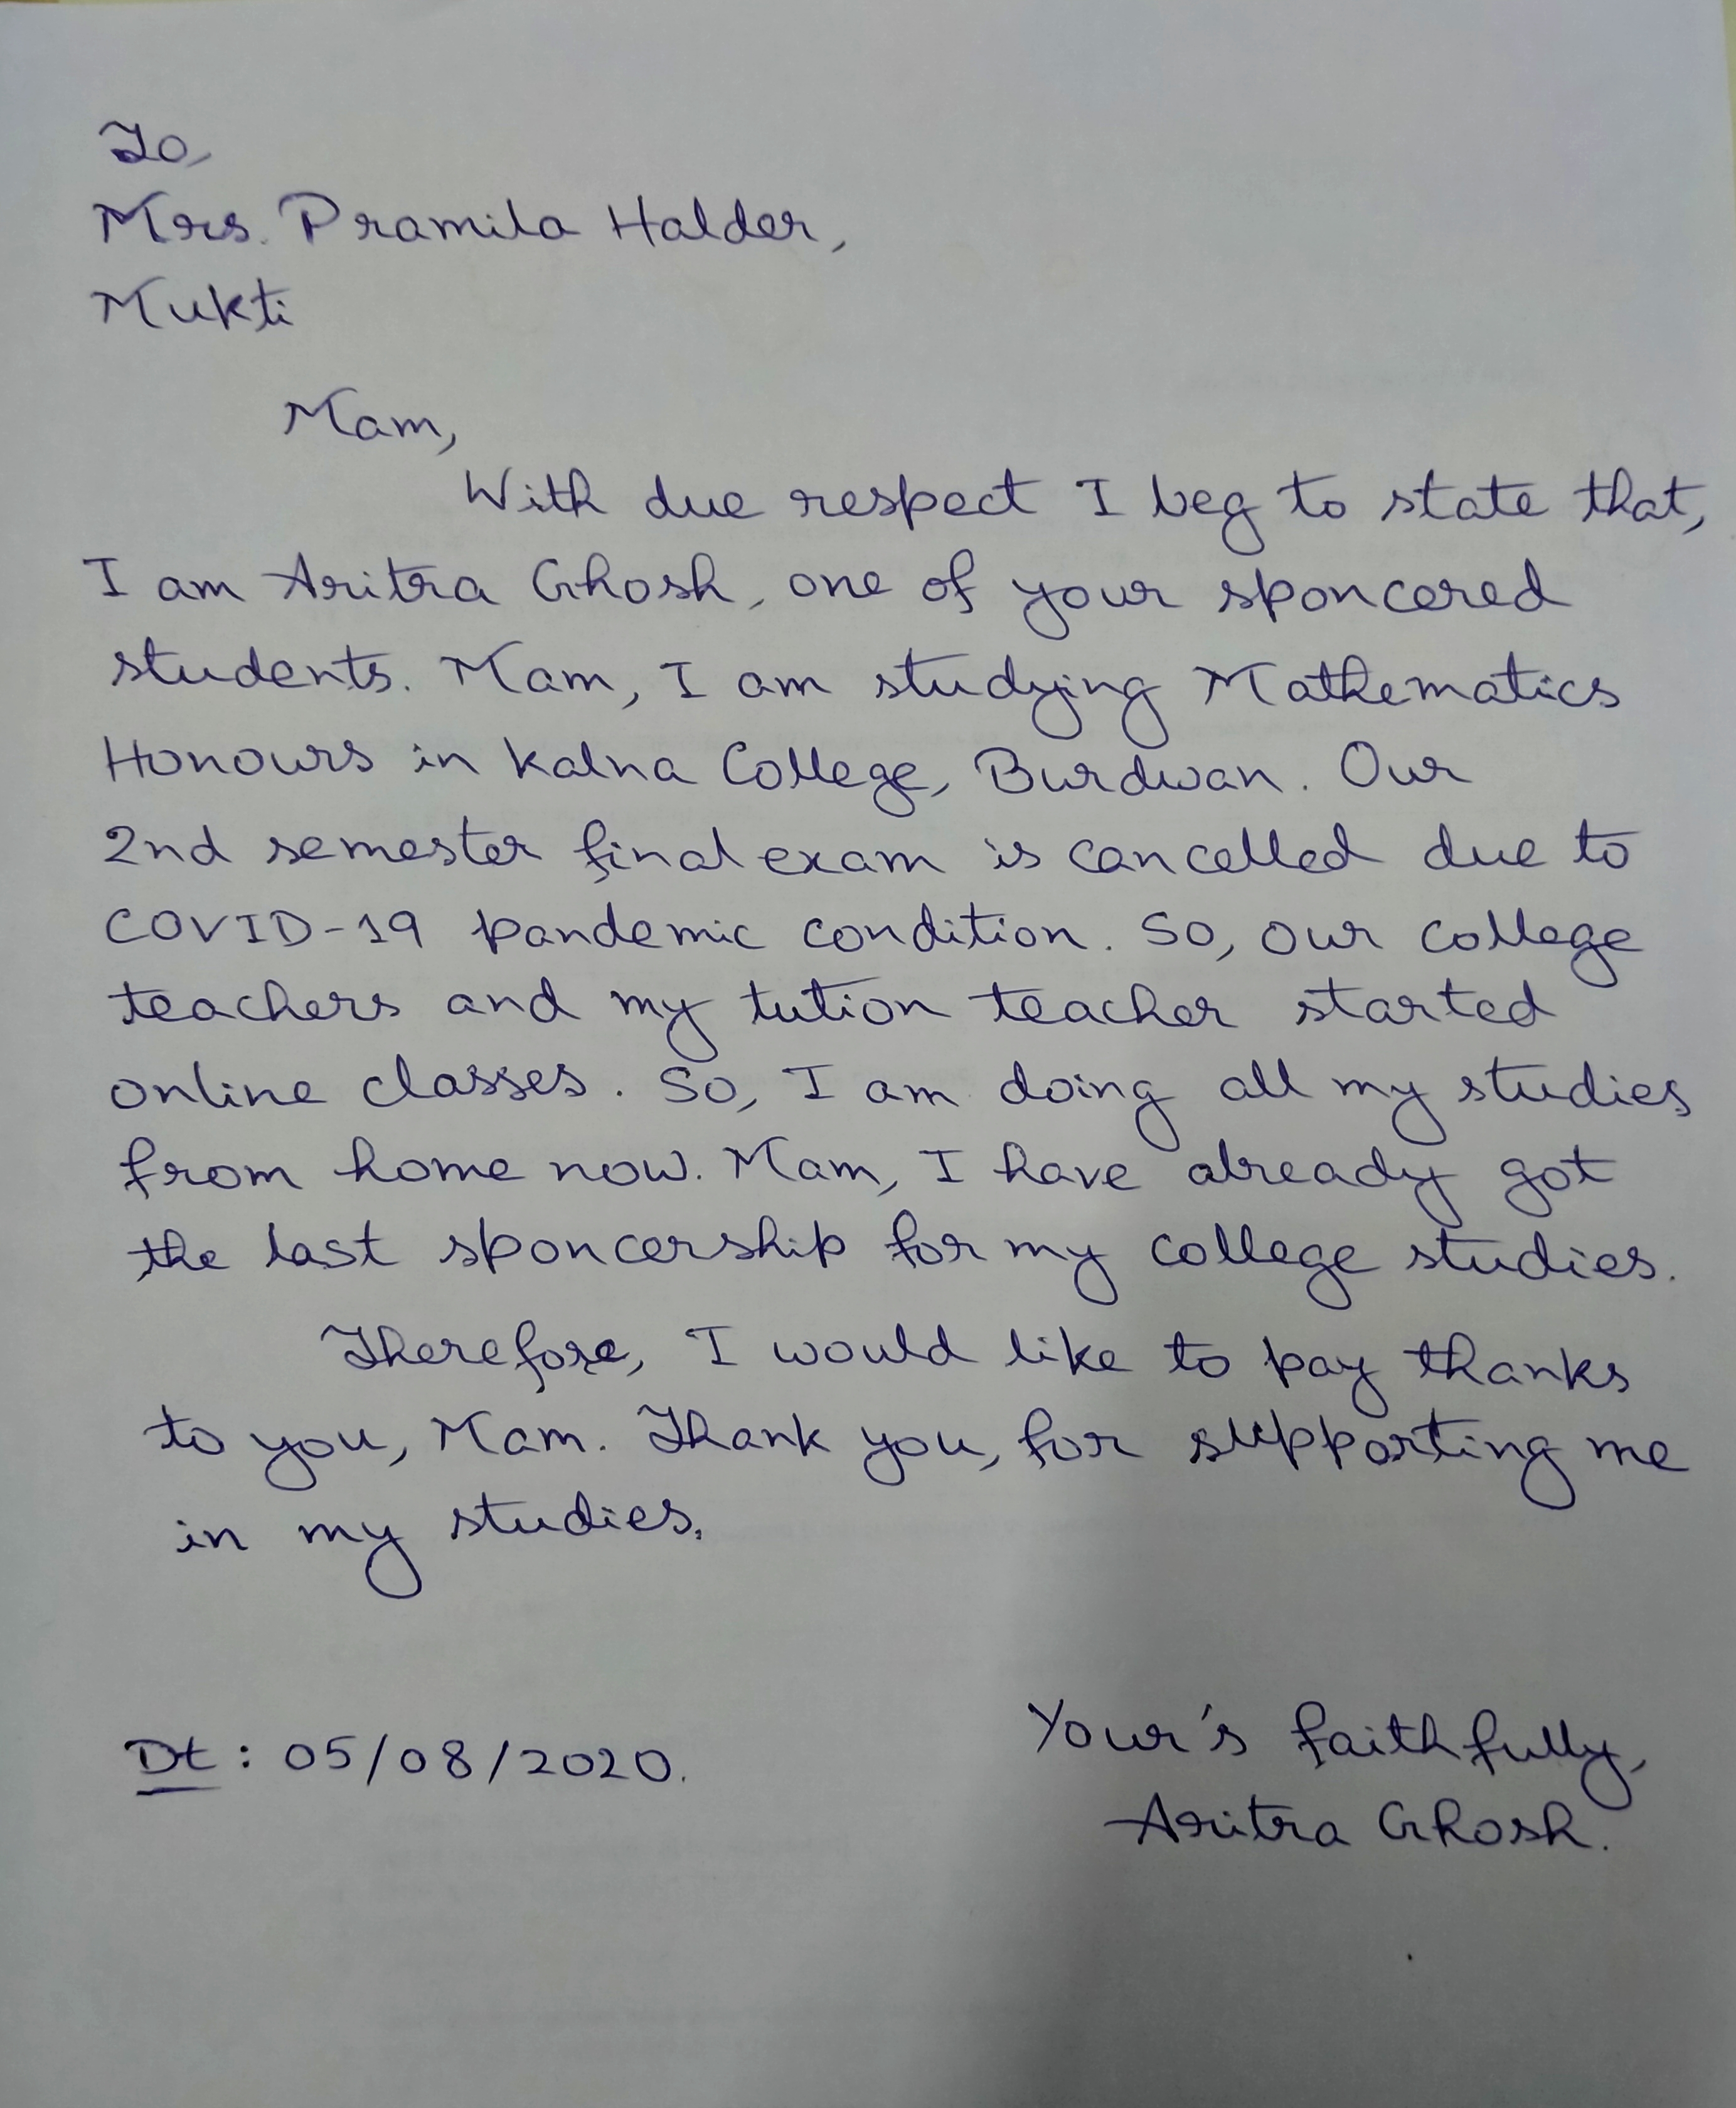 To,
Mrs. Pramila Halder,
Mukti
Mam,
With due respect I beg to state that,
I am Aritra Ghosh, one of your sponcered
students. Mam, I am studying Mathematics
Honours in Kalna College, Burdwan. Our
2nd semester final exam is cancelled due to
COVID-19 pandemic condition. So, our college
teachers and my tution teacher started
online classes. So, I am doing all my studies
from home now. Mam, I have already got
the last sponcership for my college studies.
Therefore, I would like to pay thanks
to you, Mam. Thank you, for supporting me
in my studies.
Dt: 05/08/2020.
Your's faithfully,
Aritra Ghosh.